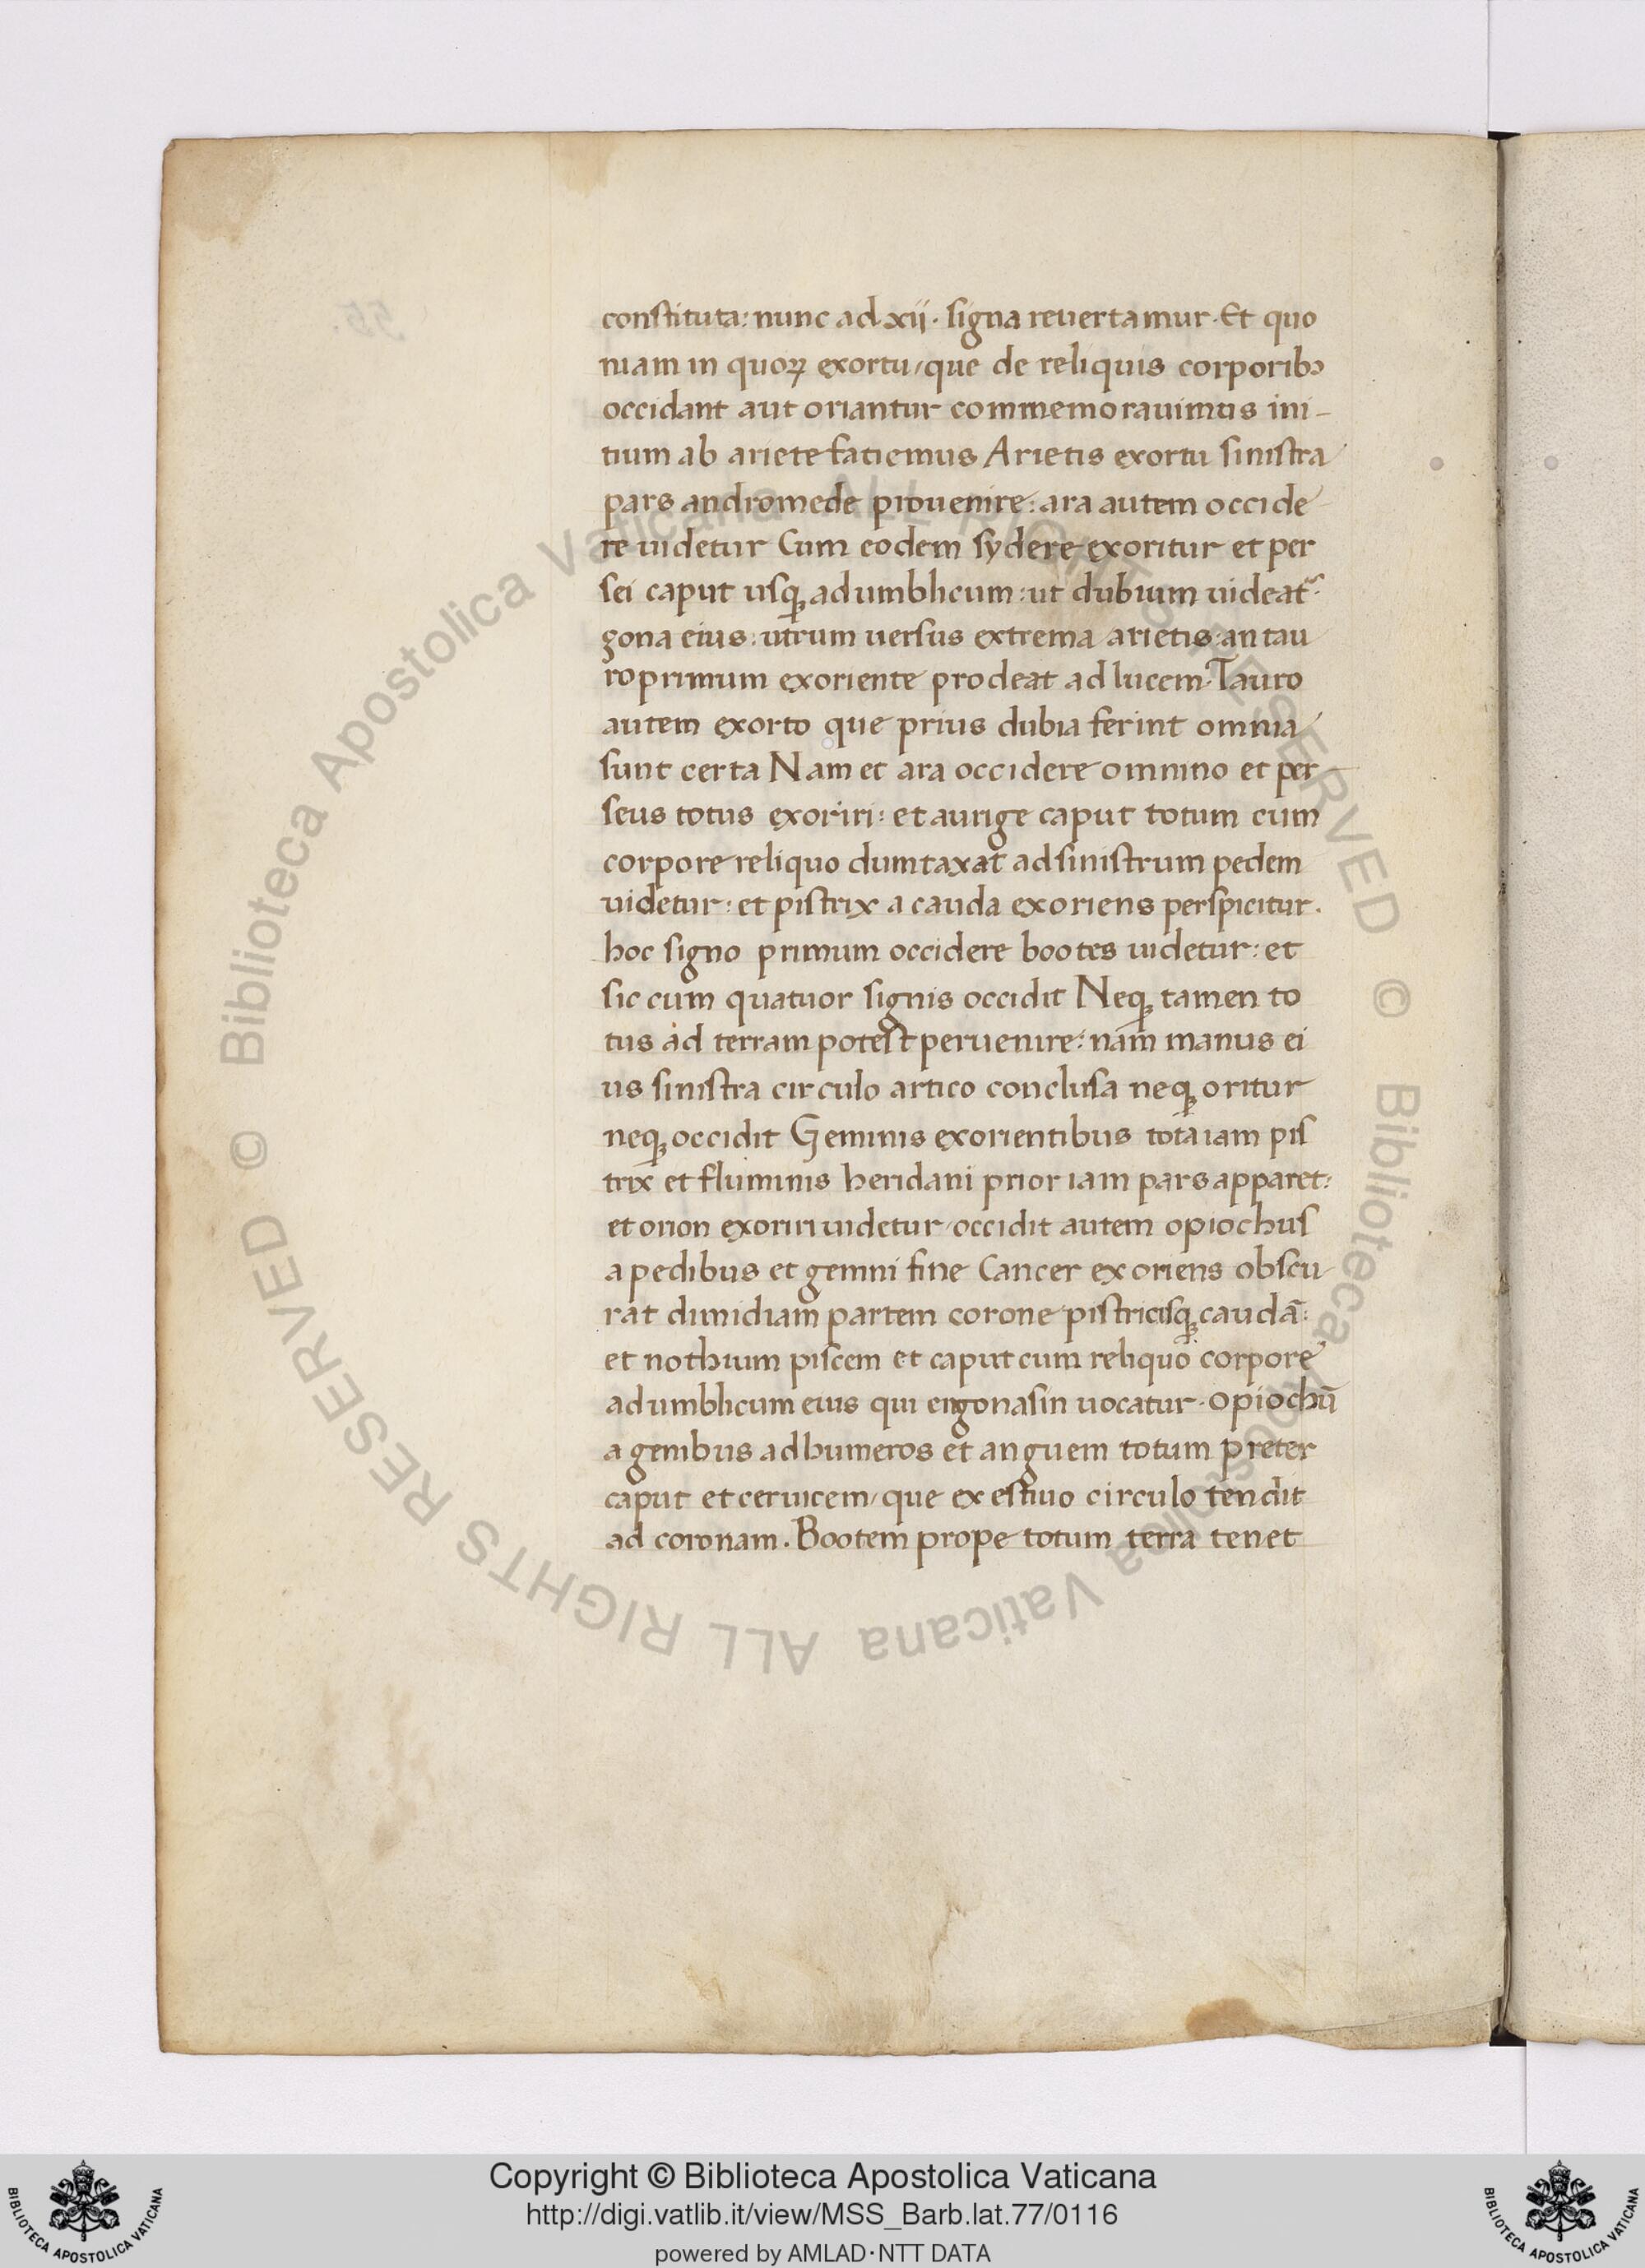 constituta: nunc ad xii. signa reuertamur. Et quo
niam in quoꝝ exortu/que de reliquis corporibꝰ
occidant aut oriantur commemorauimus ini-
tium ab ariete fatiemus Arietis exortu sinistra
pars andromede prouenire: ara autem occide
re uidetur Cum eodem sydere exoritur et per
sei caput usqꝫ ad umblicum: ut dubium uideat᷑
gona eius: utrum uersus extrema arietis: an tau
ro primum exoriente prodeat ad lucem. Tauro
autem exorto que prius dubia ferint omnia
sunt certa Nam et ara occidere omnino et per
seus totus exoriri: et aurige caput totum cum
corpore reliquo dumtaxat ad sinistrum pedem
uidetur: et pistrix a cauda exoriens perspicitur.
hoc signo primum occidere bootes uidetur: et
sic cum quatuor signis occidit Neqꝫ tamen to
tus ad terram potest peruenire: nam manus ei
us sinistra circulo artico conclusa neqꝫ oritur
neqꝫ occidit Geminis exorientibus tota iam pis
trix et fluminis heridani prior iam pars apparet:
et orion exoriri uidetur/occidit autem opiochus
a pedibus et gemni fine Cancer exoriens obscu
rat dimidiam partem corone pistricisqꝫ caudā:
et nothium piscem et caput cum reliquo corpore
ad umblicum eius qui engonasin uocatur. opiochū
a genibus ad humeros et anguem totum preter
caput et ceruicem/que ex estiuo circulo tendit
ad coronam. Bootem prope totum terra tenet
55.
© Biblioteca Apostolica Vaticana ALL RIGHTS RESERVED © Biblioteca Apostolica Vaticana ALL RIGHTS RESERVED
Copyright © Biblioteca Apostolica Vaticana
http://digi.vatlib.it/view/MSS_Barb.lat.77/0116
powered by AMLAD·NTT DATA
BIBLIOTECA APOSTOLICA VATICANA
BIBLIOTECA APOSTOLICA VATICANA